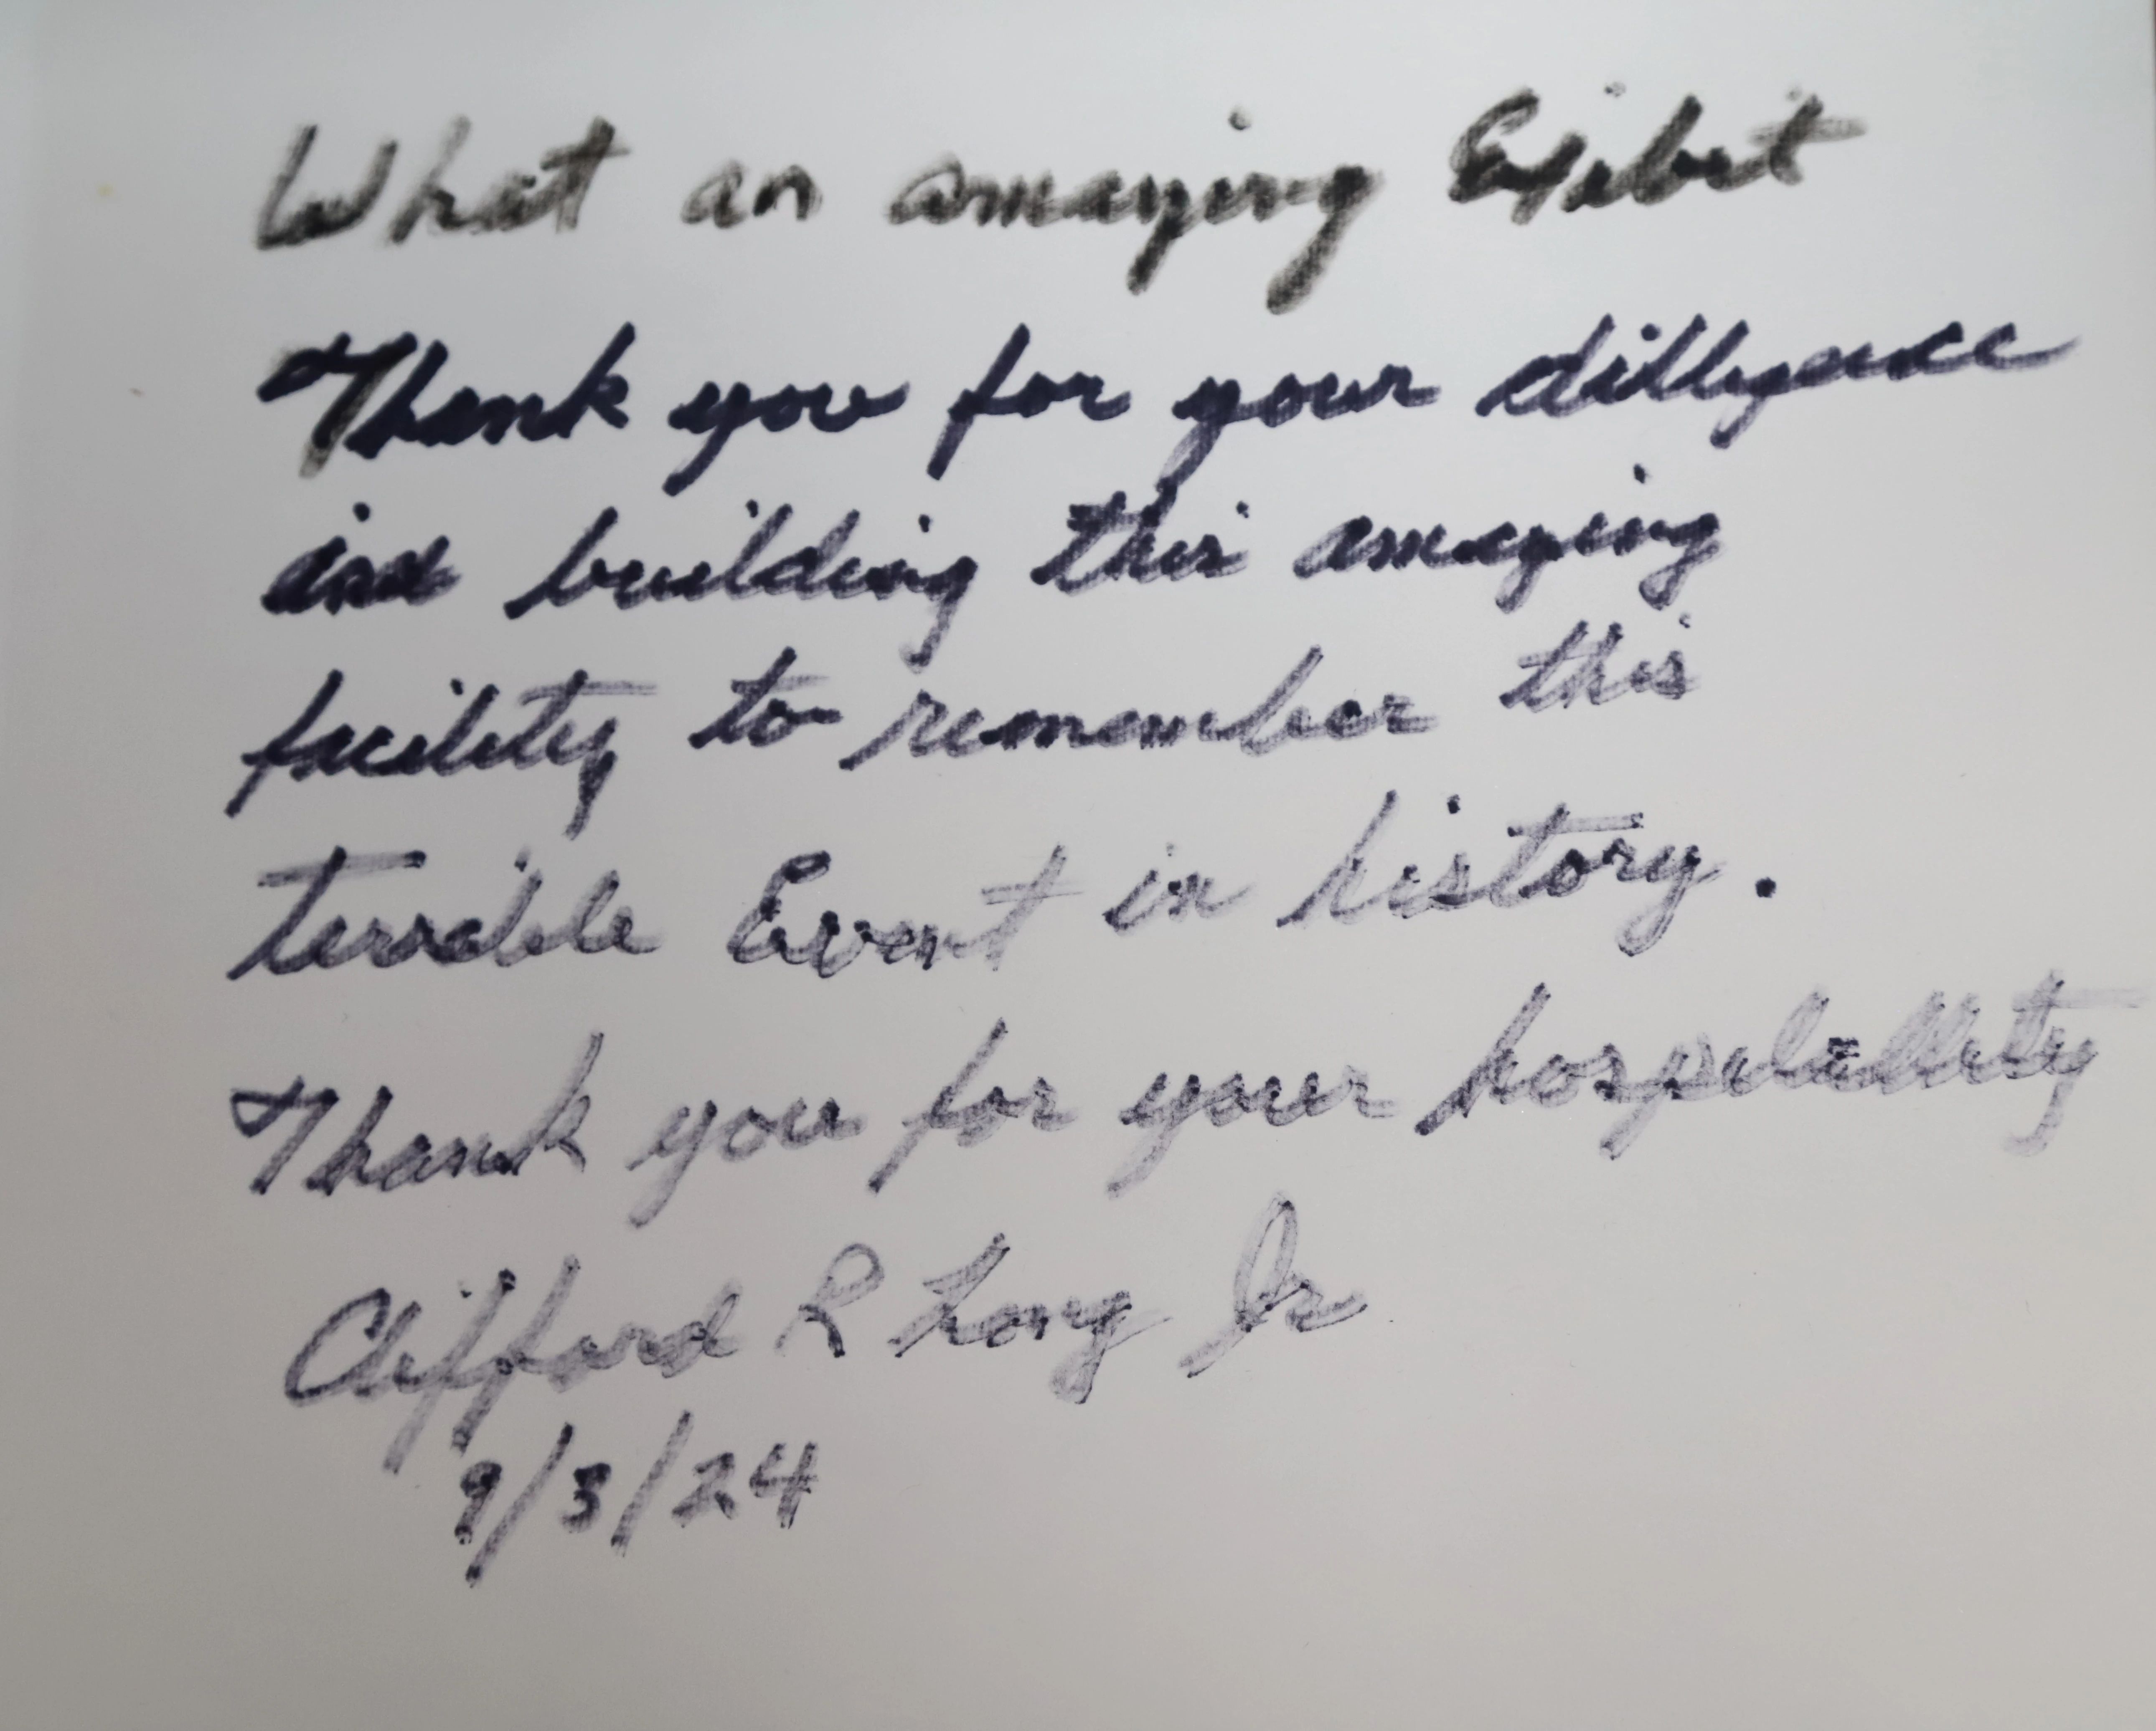 What an amazing Exibit
Thank you for your dilligence
and building this amazing
facility to remember this
terrible Event in history.
Thank you for your hospitallity
Clifford R Long Jr
9/3/24